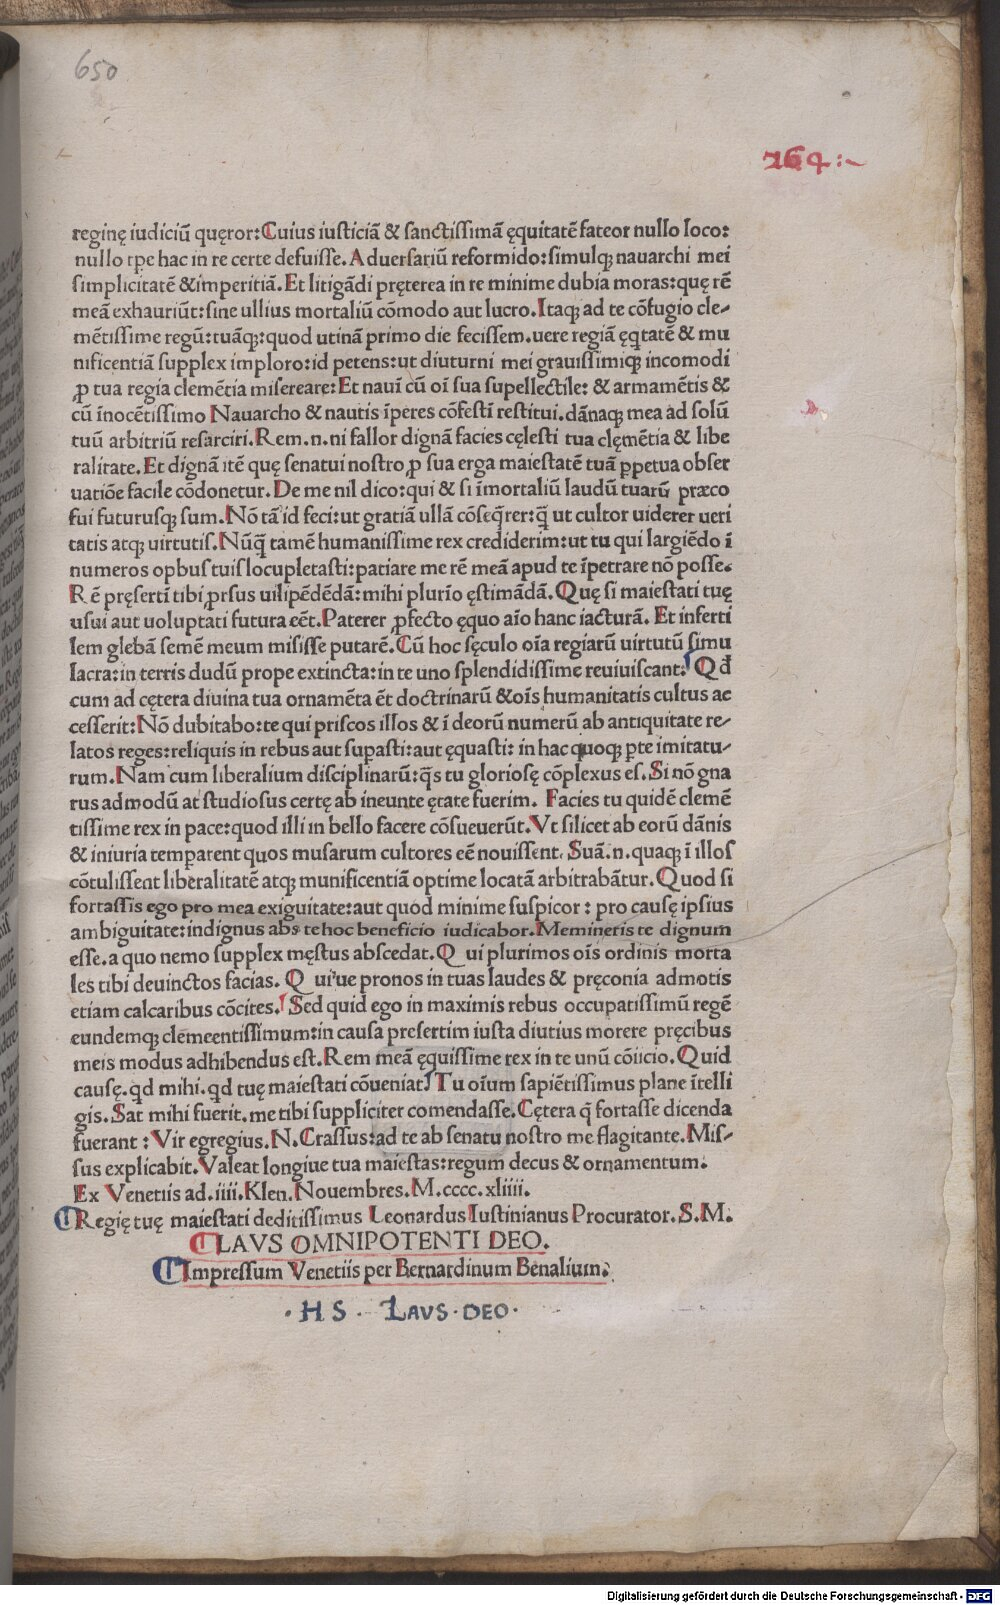 650
264:~
reginę iudiciū quęror:Cuius iusticiā & sanctissimā ęquitatē fateor nullo loco:
nullo tpe hac in re certe defuisse. Aduersariū reformido:simulqꝫ nauarchi mei
simplicitatē &imperitiā. Et litigādi pręterea in re minime dubia moras:quę rē
meā exhauriūt:sine ullius mortaliū cōmodo aut lucro. Itaqꝫ ad te cōfugio cle-
mētissime regū:tuāqꝫ:quod utinā primo die fecissem. uere regiā ęq̄tatē & mu
nificentiā supplex imploro:id petens:ut diuturni mei grauissimiqꝫ incomodi
ꝓ tua regia clemētia misereare:Et nauī cū oī sua supellectile: & armamētis &
cū īnocētissimo Nauarcho & nautis īperes cōfestī restitui. dānaqꝫ mea ad solū
tuū arbitriū resarciri. Rem.n.ni fallor dignā facies cęlesti tua clęmētia & libe
ralitate. Et dignā itē quę senatui nostro ꝓ sua erga maiestatē tuā ꝑpetua obser
uatiōe facile cōdonetur. De me nil dico:qui & si īmortaliū laudū tuarū præco
fui futurusqꝫ sum. Nō tā id feci:ut gratiā ullā cōseq̄rer:q̄ ut cultor uiderer ueri
tatis atqꝫ uirtutis. Nūq̄ tamē humanissime rex crediderim:ut tu qui largiēdo ī
numeros opbus tuis locupletasti:patiare me rē meā apud te īpetrare nō posse.
R ē pręsertī tibi ꝓrsus uilipēdēdā:mihi plurīo ęstimādā. Quę si maiestati tuę
usui aut uoluptati futura eēt. Paterer ꝓfecto ęquo aīo hanc iacturā. Et inferti
lem glebā semē meum misisse putarē. Cū hoc sęculo oīa regiarū uirtutū simu
lacra:in terris dudū prope extincta:in te uno splendidissime reuiuiscant. Qd̄
cum ad cętera diuina tua ornamēta ēt doctrinarū &oīs humanitatis cultus ac
cesserit:Nō dubitabo:te qui priscos illos & ī deorū numerū ab antiquitate re-
latos reges:reliquis in rebus aut supasti:aut ęquasti: in hac quoqꝫ ꝑte imitatu-
rum. Nam cum liberalium disciplinarū:q̄s tu gloriosę cōplexus es. Si nō gna
rus admodū at studiosus certę ab ineunte ętate fuerim. Facies tu quidē clemē
tissime rex in pace:quod illi in bello facere cōsueuerūt. Vt silicet ab eorū dānis
& iniuria temꝑarent quos musarum cultores eē nouissent. Suā.n.quaqꝫ ī illos
cōtulissent liberalitatē atqꝫ munificentiā optime locatā arbitrabātur. Quod si
fortassis ego pro mea exiguitate:aut quod minime suspicor : pro causę ipsius
ambiguitate:indignus abs te hoc beneficio iudicabor. Memineris te dignum
esse. a quo nemo supplex męstus abscedat. Q ui plurimos oīs ordinis morta
les tibi deuinctos facias. Q ui'ue pronos in tuas laudes & pręconia admotis
etiam calcaribus cōcites. Sed quid ego in maximis rebus occupatissimū regē
eundemqꝫ clemeentissimum:in causa presertim iusta diutius morere pręcibus
meis modus adhibendus est. Rem meā ęquissime rex in te unū cōiicio. Quid
causę. qd mihi. qd tuę maiestati cōueniat Tu oīum sapiētissimus plane ītelli
gis. Sat mihi fuerit. me tibi suppliciter comendasse. Cętera q̄ fortasse dicenda
fuerant : Vir egregius. N. Crassus:ad te ab senatu nostro me flagitante. Mis-
sus explicabit. Valeat longiue tua maiestas:regum decus & ornamentum.
Ex Venetiis ad. iiii. Klen. Nouembres. M.cccc.xliiii.
Regię tuę maiestati deditissimus Leonardus Iustinianus Procurator. S.M.
LAVS OMNIPOTENTI DEO.
Impressum Venetiis per Bernardinum Benalium.
· H S · LAVS · DEO ·
Digitalisierung gefördert durch die Deutsche Forschungsgemeinschaft - DFG